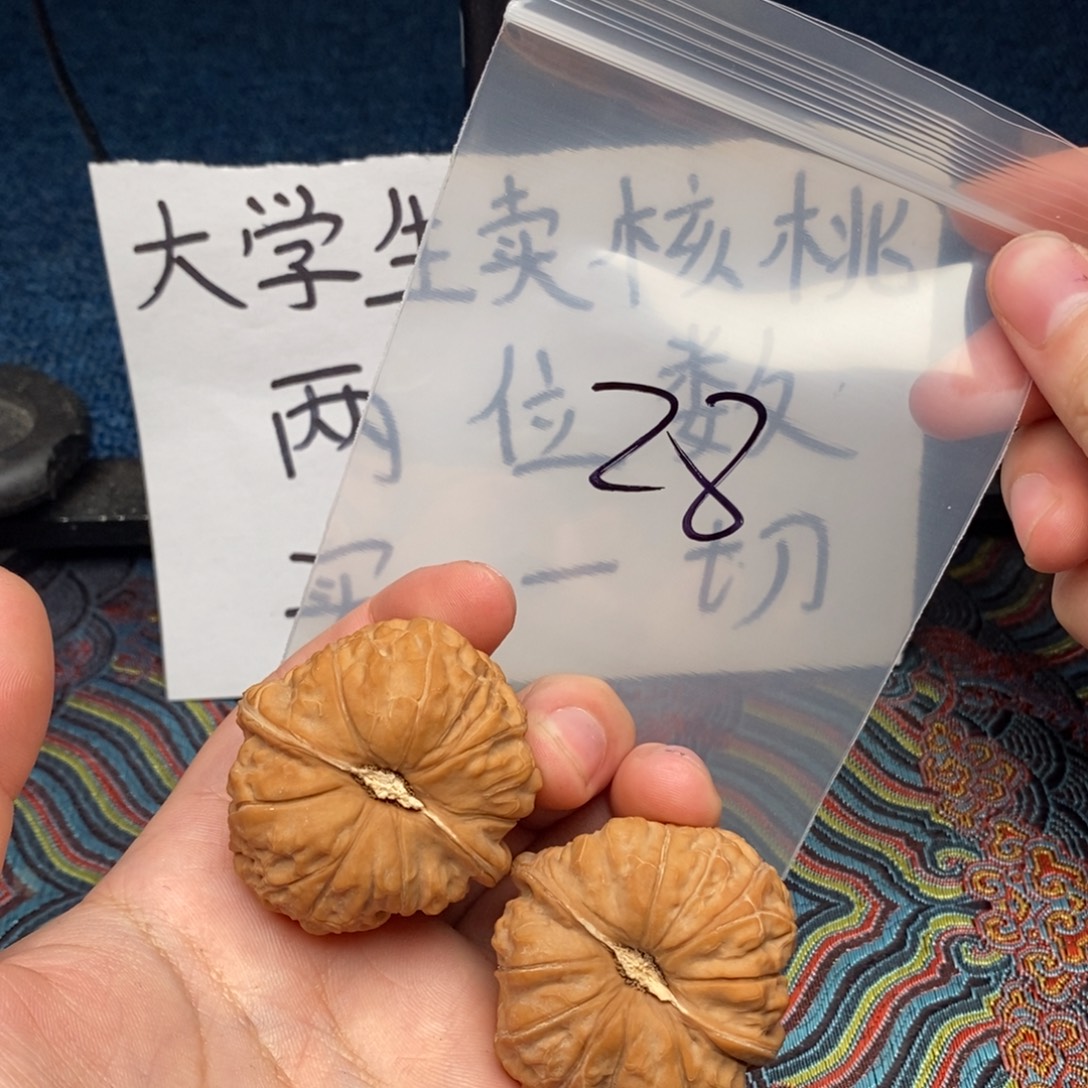 大学生卖核桃
两位数
买一切
28